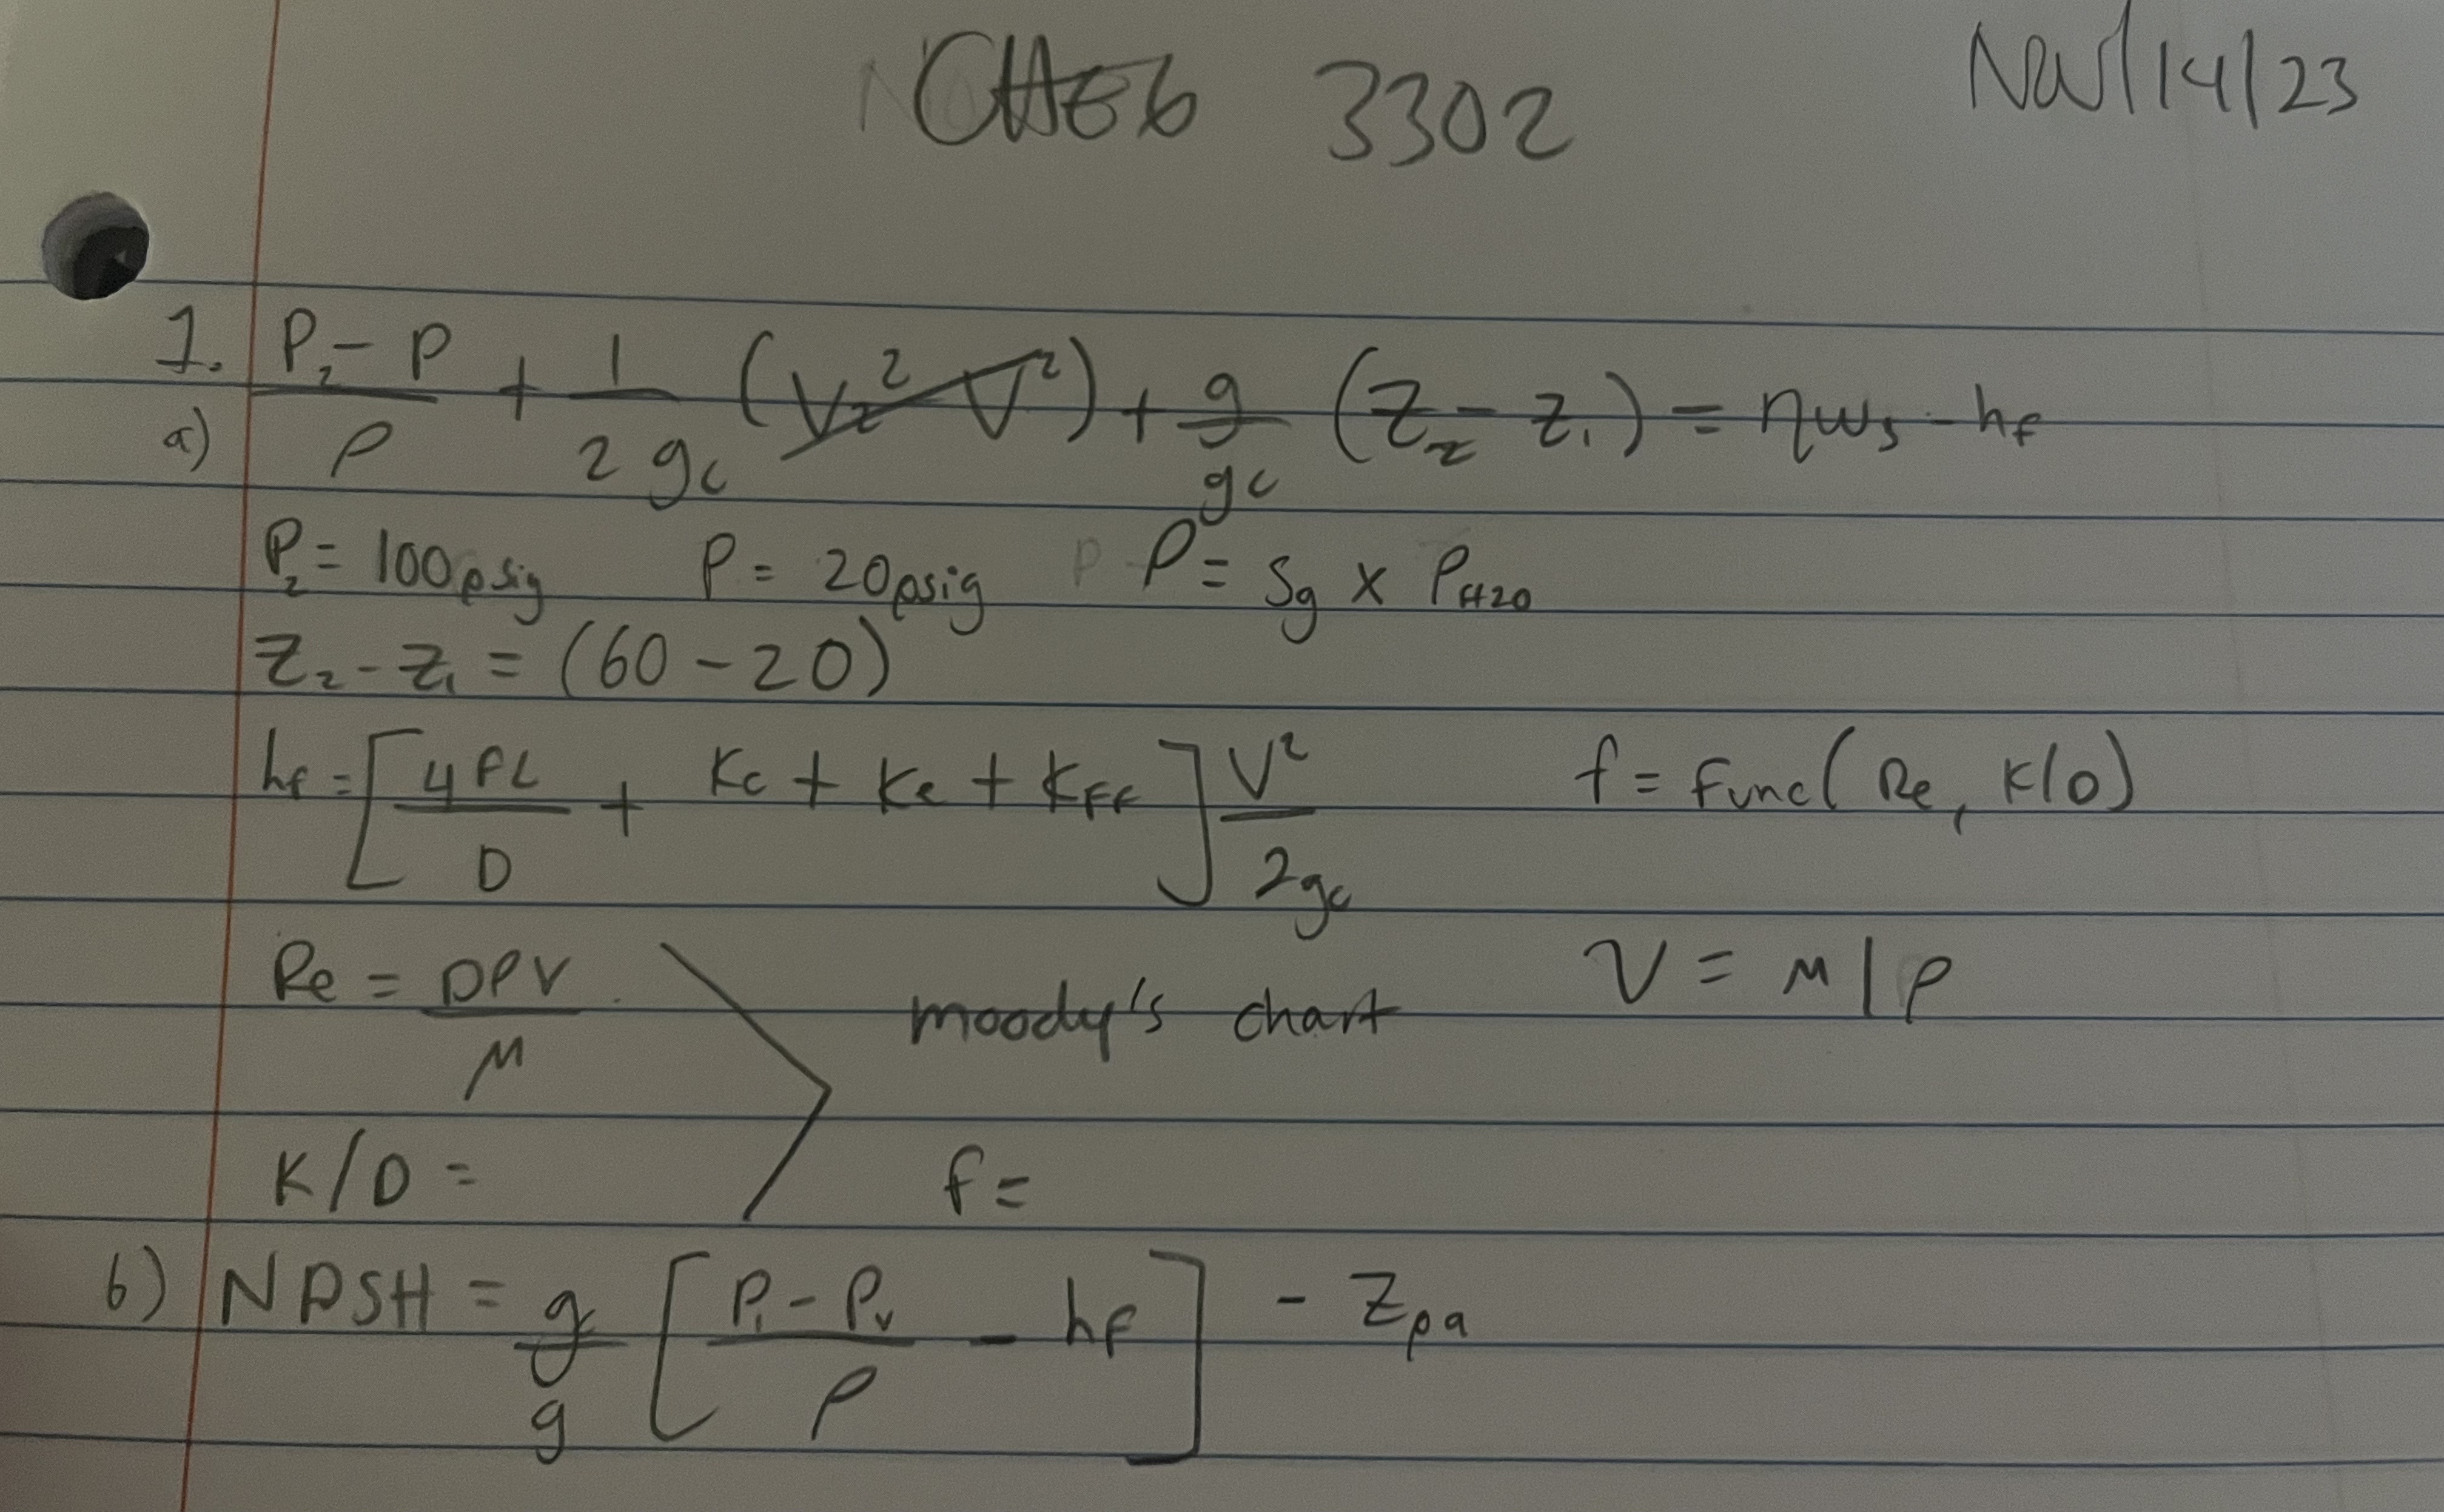 CHEG 3302 Nov/14/23
1. a) (P₂ - P)/ρ + 1/(2 gc) (V₂² - V²) + g/gc (Z₂ - Z₁) = ηWs - hf
P₂ = 100psig P = 20psig ρ = Sg x ρH2O
Z₂ - Z₁ = (60 - 20)
hf = [4fL/D + Kc + Ke + Kff] V²/2gc f = Func(Re, K/D)
Re = DρV/μ moody's chart ν = μ/ρ
K/D = f =
b) NPSH = gc/g [(P₁ - Pv)/ρ - hf] - Zpa